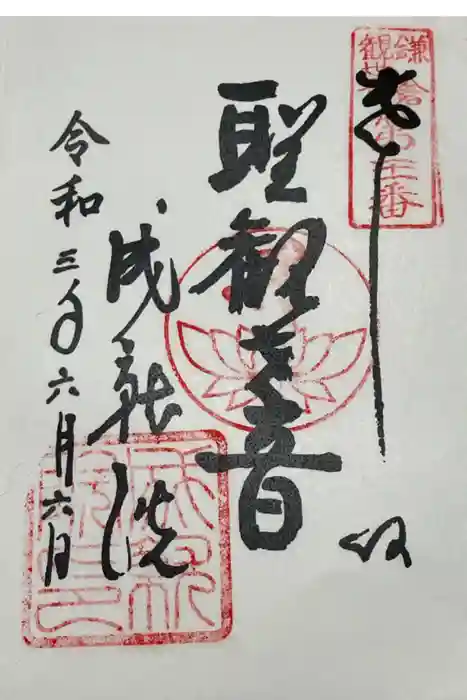 奉拝
鎌倉
観世音
第二十一番
聖観世音
成就院
令和三年六月六日